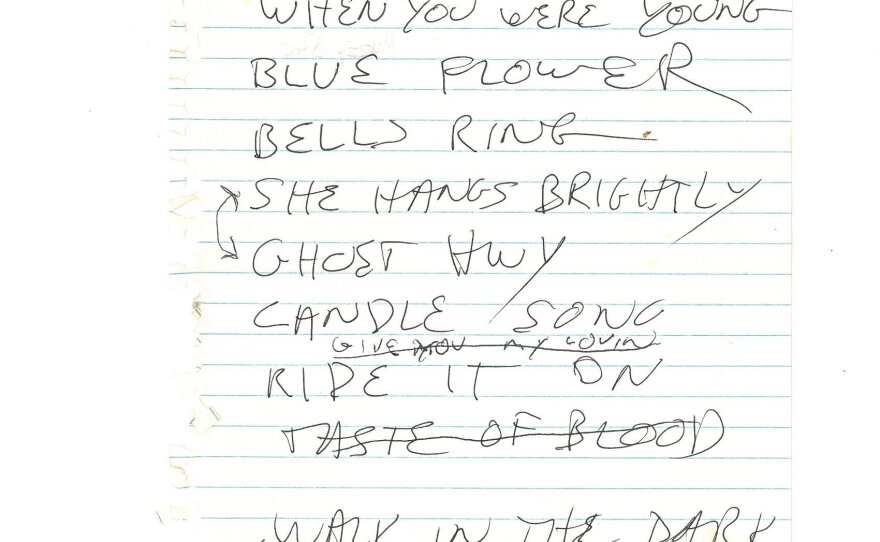 WHEN YOU WERE YOUNG
BLUE FLOWER
BELLS RING
SHE HANGS BRIGHTLY
GHOST HWY
CANDLE SONG
GIVE YOU MY LOVIN
RIDE IT ON
TASTE OF BLOOD
WALK IN THE DARK